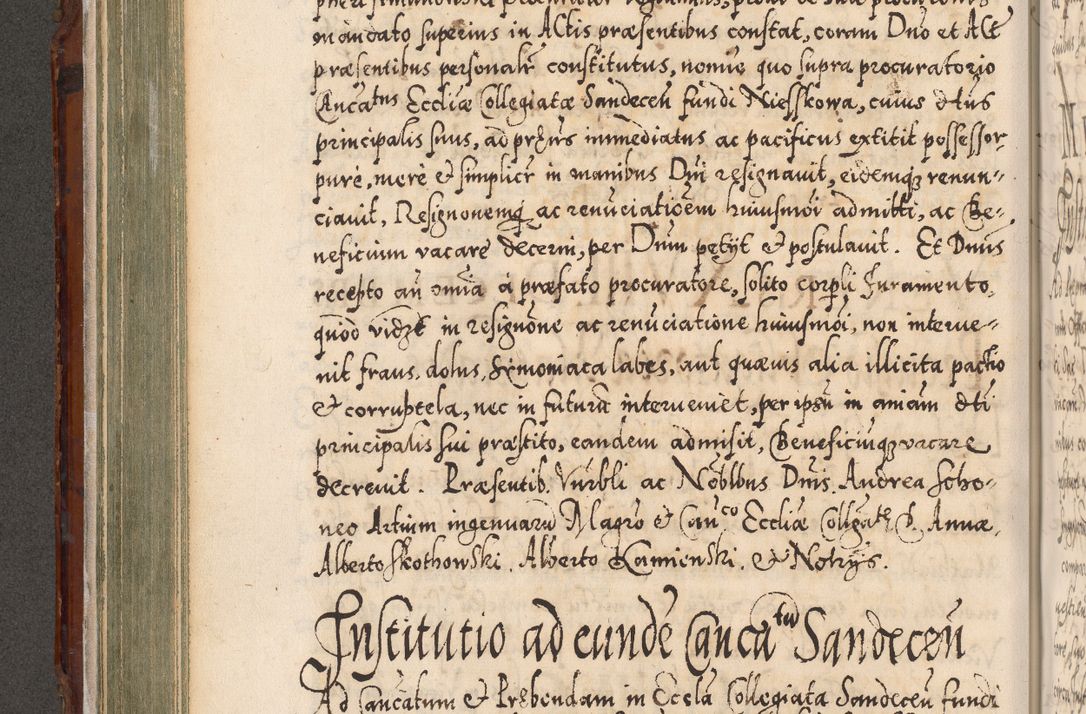 mandato superius in Actis præsentibus constat, coram Dno et Act
præsentibus personalr constitutus, nomie quo supra procuratorio
Cancatus Eccliæ Collegiatæ Sandeceñ fundi Niesskowa, cuius dtus
principalis suus, ad præns immediatus ac pacificus extitit possessor,
pure, mere & simplicr in manibus Dni resignavit, eidemq renun-
ciavit, Resignonemq ac renuciatioem huiusmoi admitti, ac Be-
neficium vacare decerni, per Dnum petyt & postulavit. Et Dnus
recepto añ omia à præfato procuratore, solito corpli Juramento,
quod videt in resignone ac renuciatione huiusmoi, non interve-
nit fraus, dolus, Symoniaca labes, aut quævis alia illicita pactio
& corruptela, nec in futuru interveniet, per ipsu in aniam dti
principalis sui præstito, eandem admisit, Beneficiuq vacare
decrevit. Præsentib. Vnrbli ac Noblbus Dnis. Andrea Scho-
neo Artium ingenuaru Magro & Canco Eccliæ Collgatæ S. Annæ,
Alberto Skothowski, Alberto Kamienski, & Notrijs.
Institutio ad eunde Cancatu Sandeceñ
Ad Cancatum & Præbendam in Eccla Collegiata Sandeceñ fundi